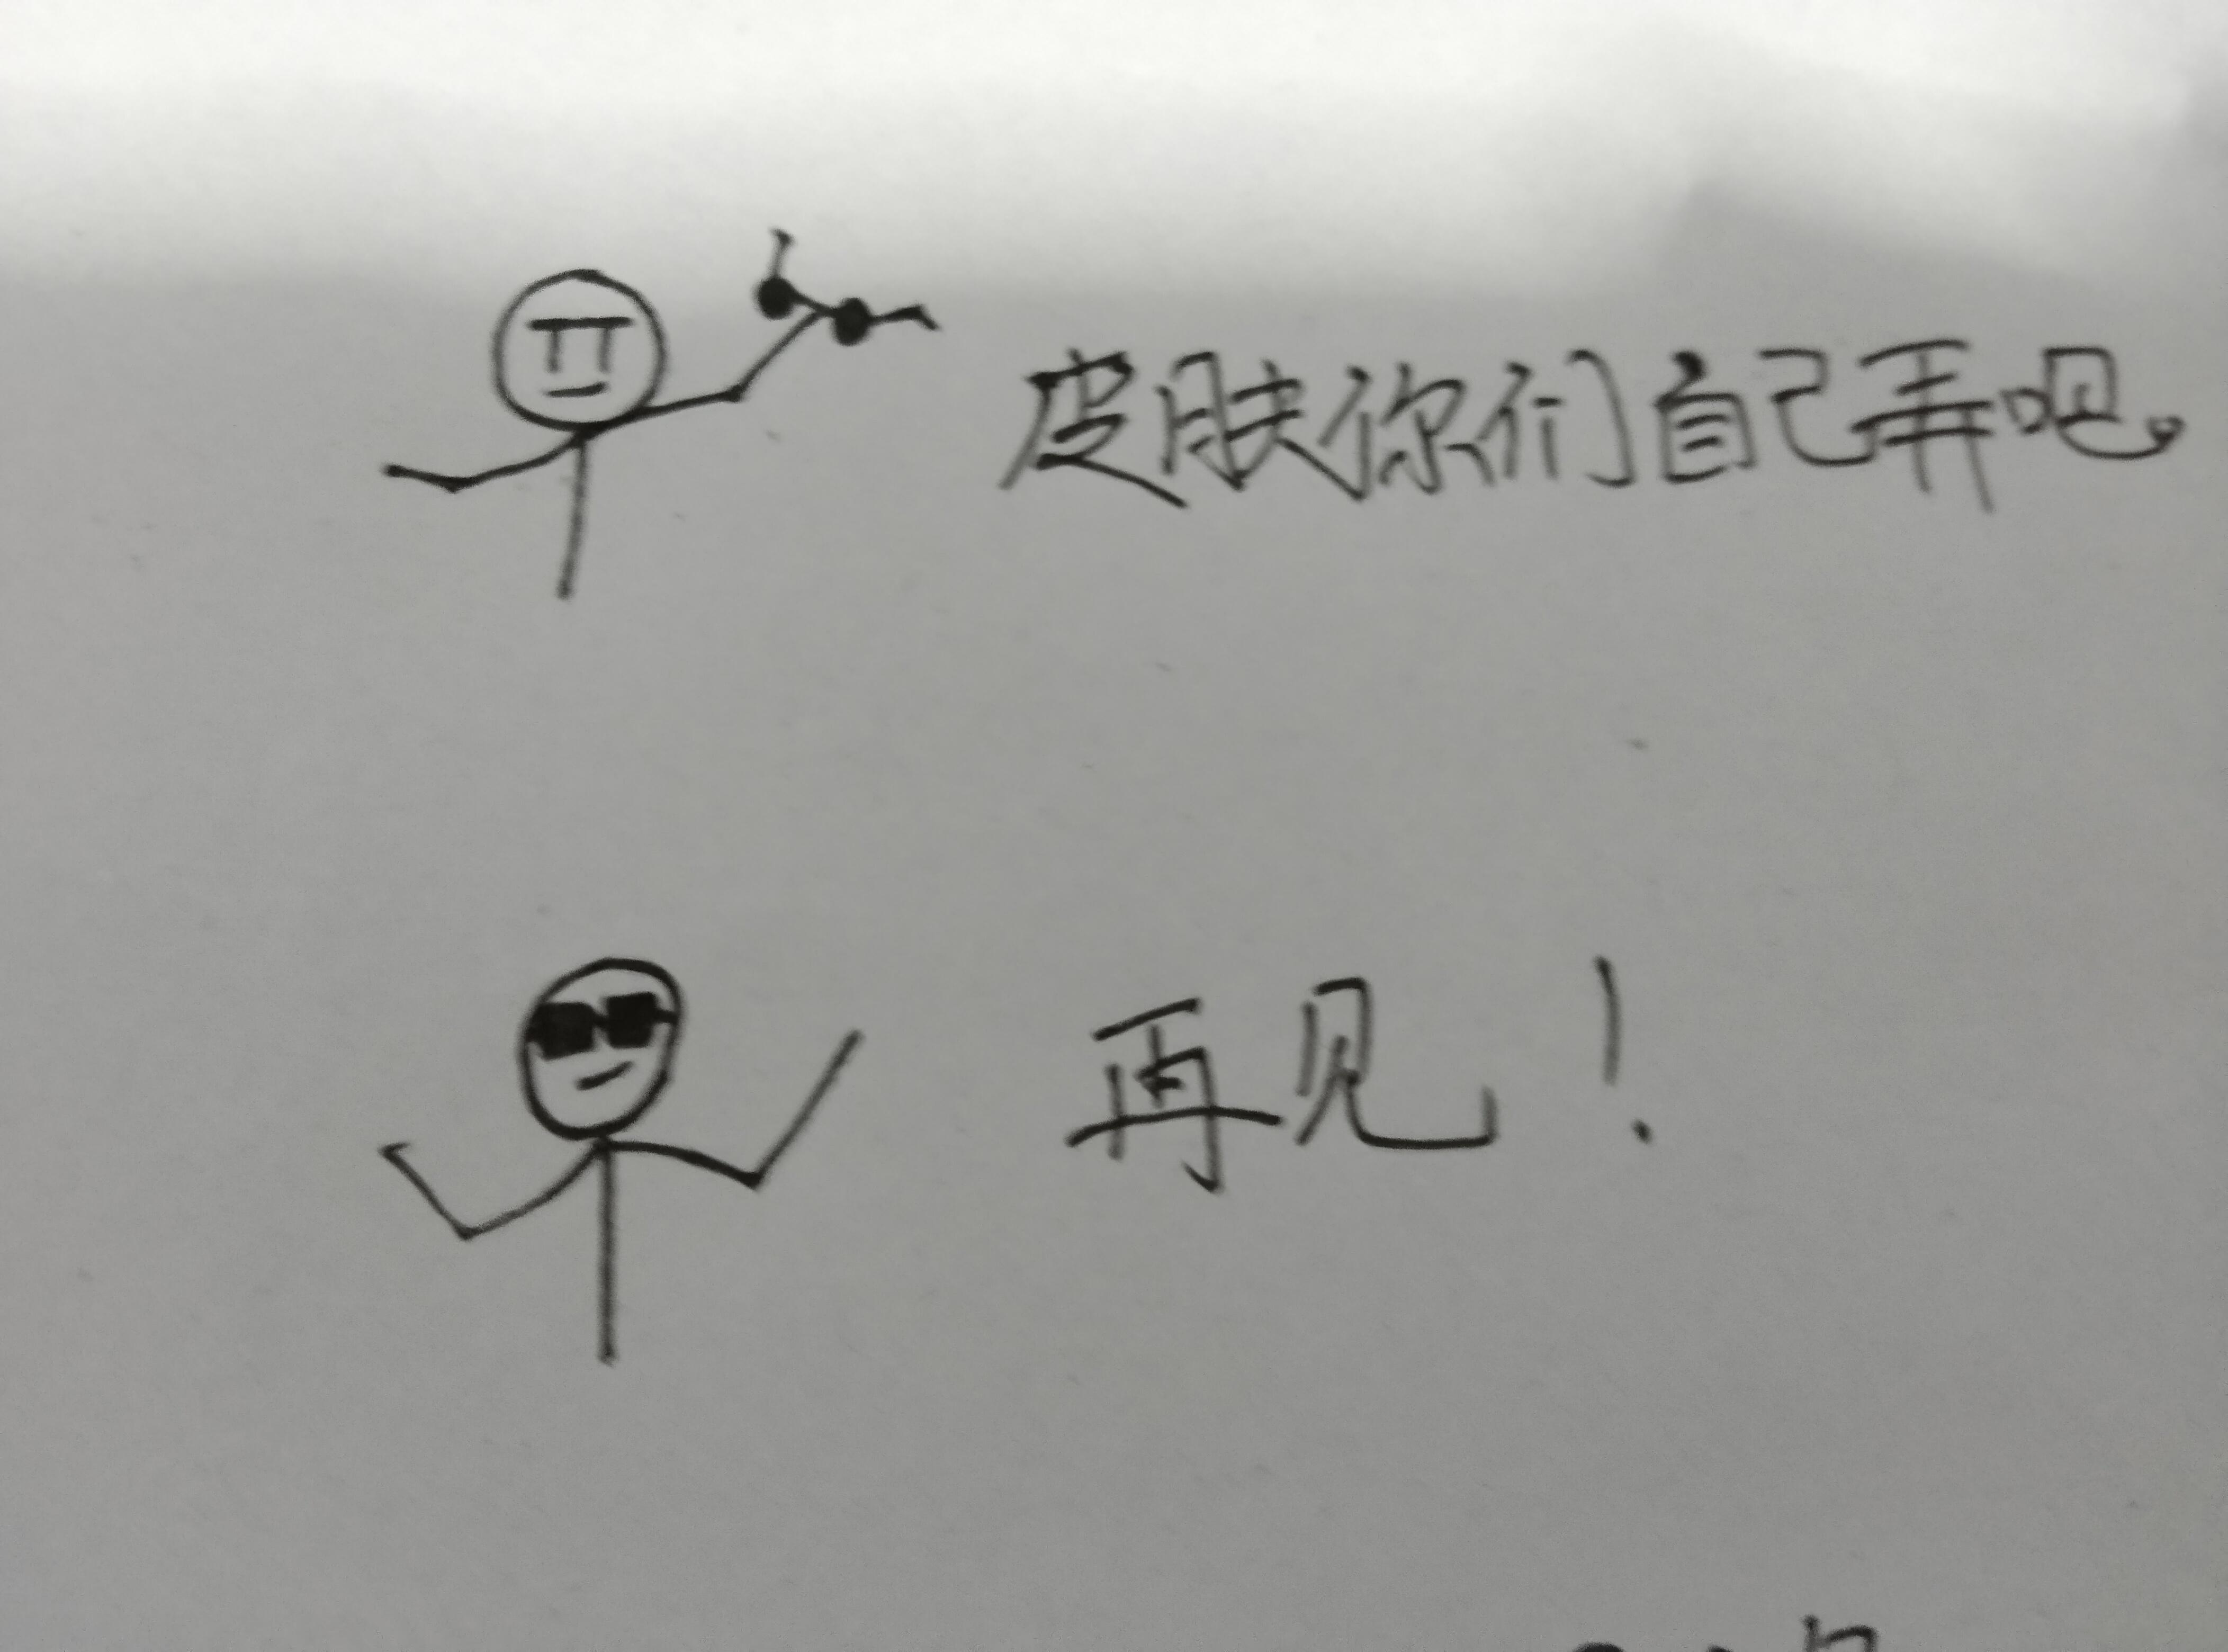 皮肤你们自己弄吧。
再见！